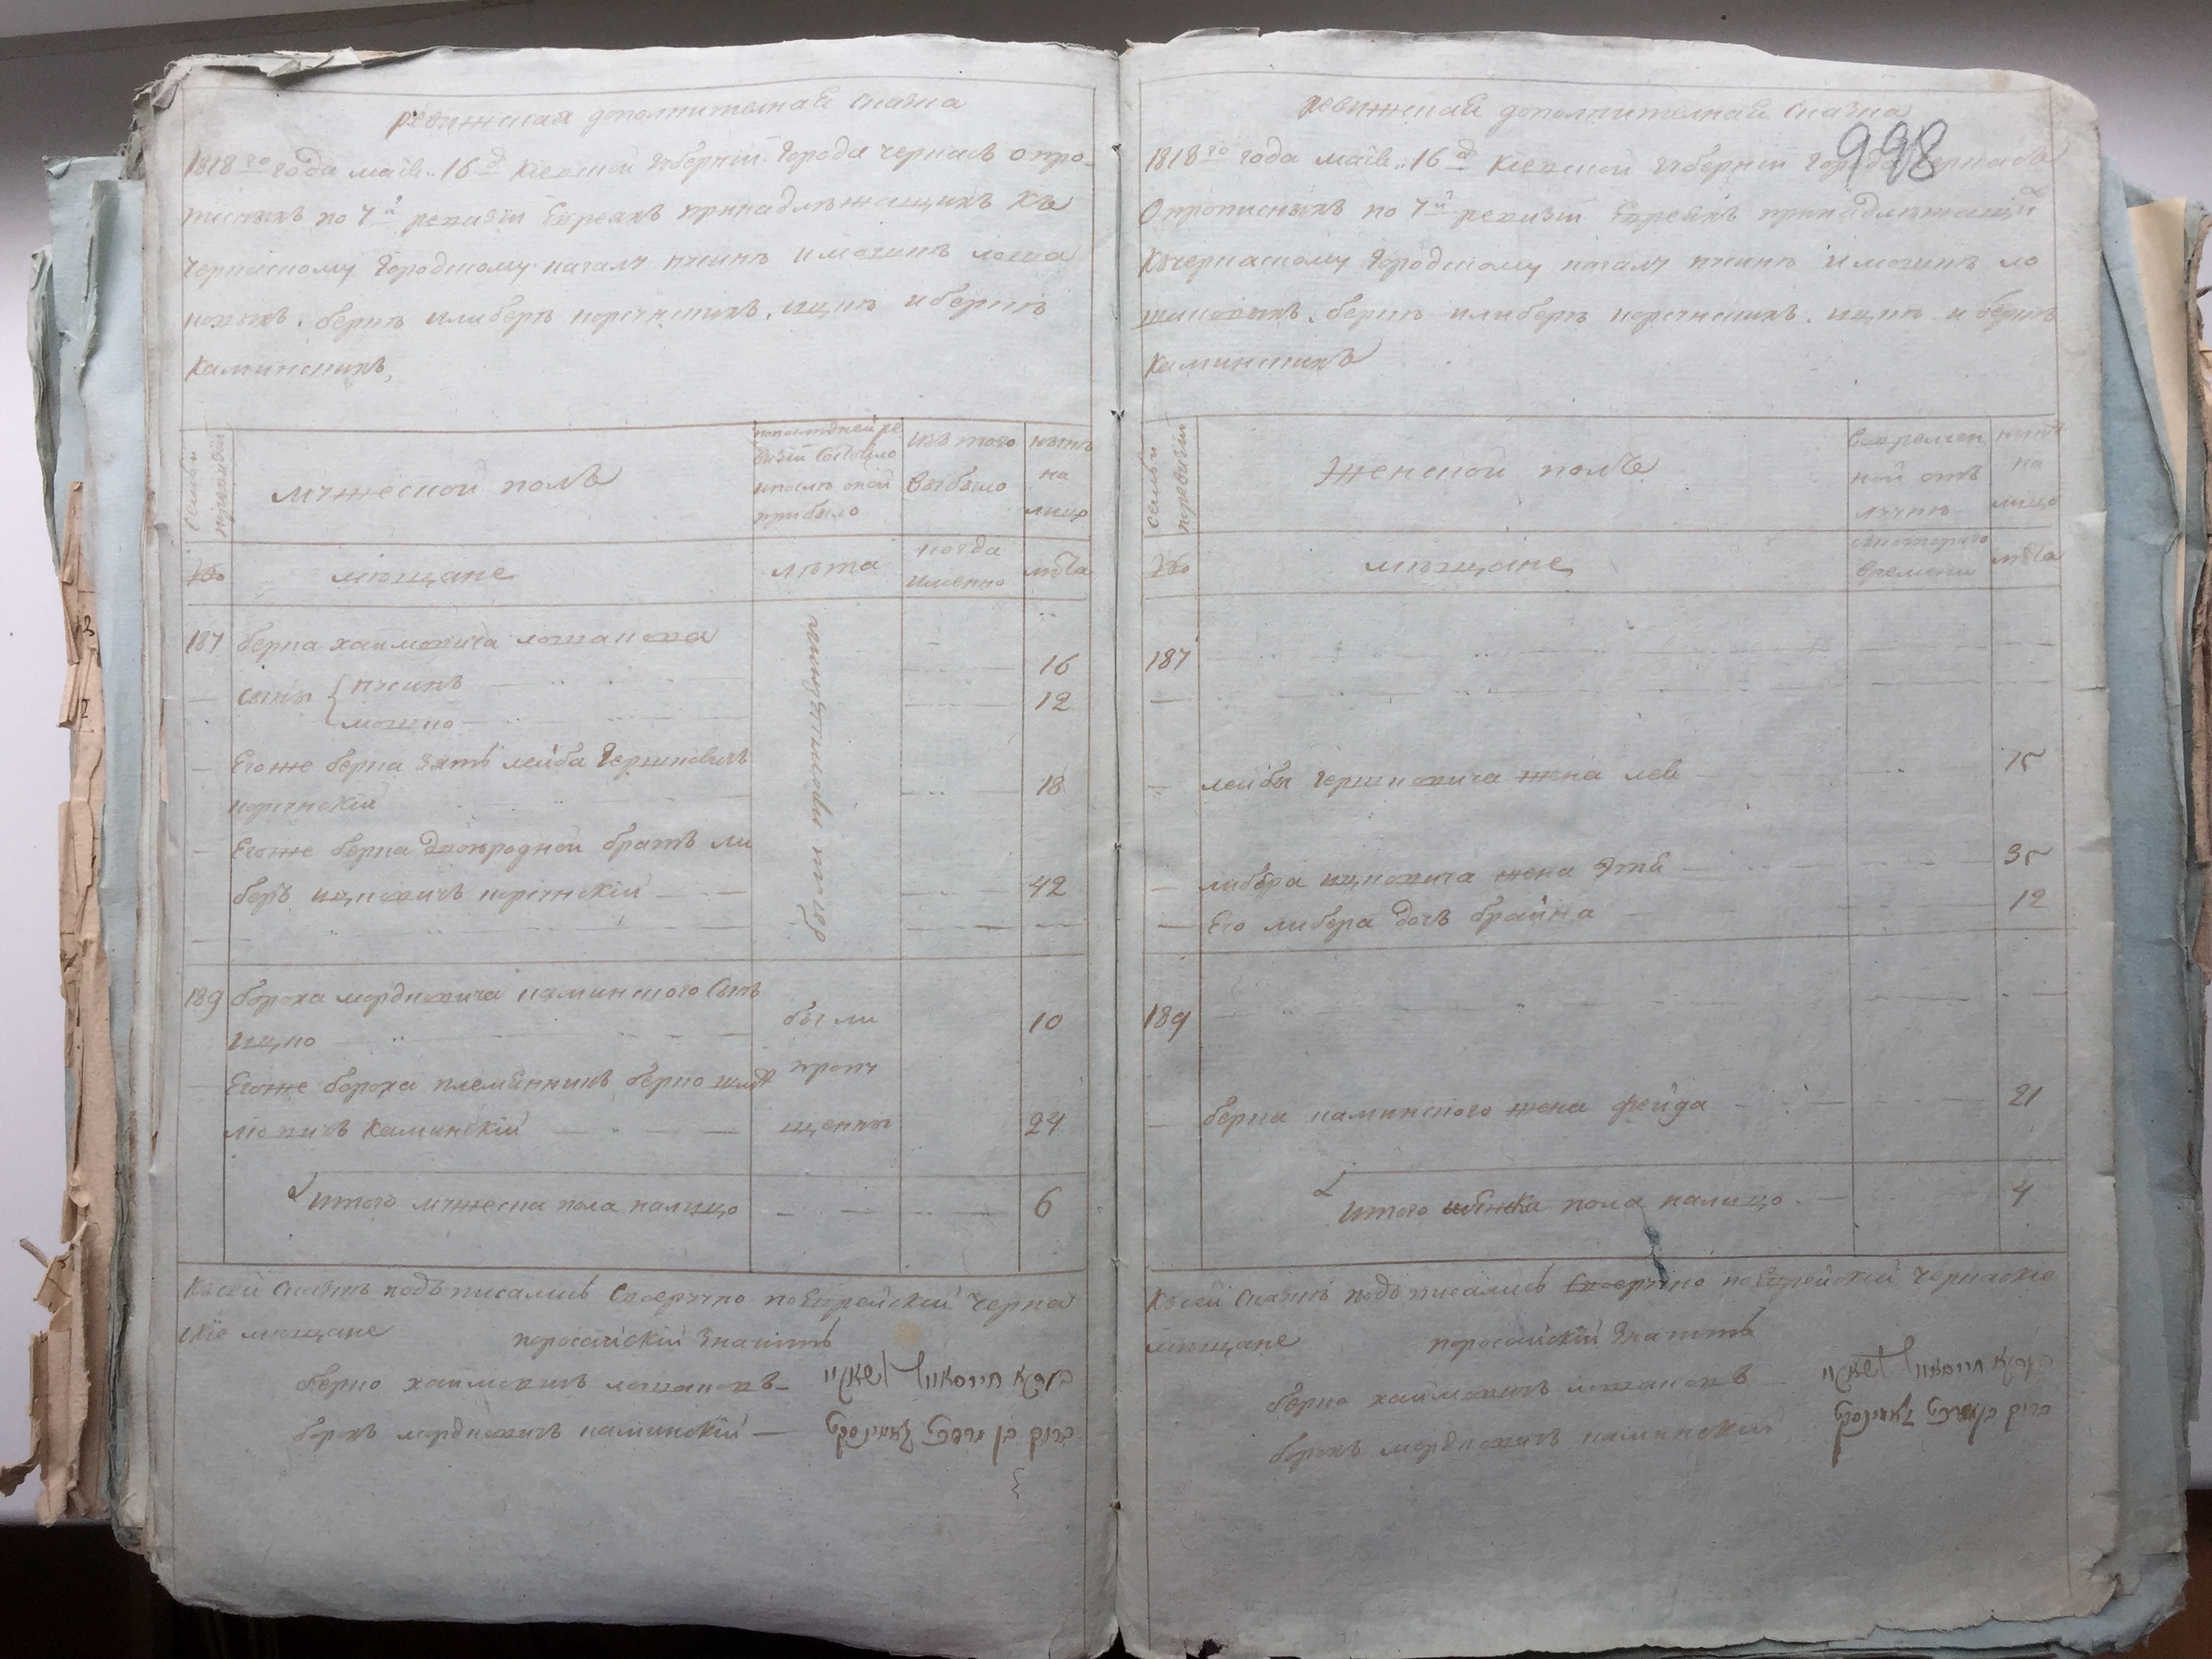 ревижская дополнителная сказка
1818го года маия 16д Киевской губернїи города черкасъ о про-
писныхъ по 7й ревизїи Евреяхъ принадлежащихъ Къ
черкаскому Городскому кагалу пусинъ и мошкъ лоша
ковыхъ. беркъ и либеръ корсунскихъ, ицкъ и беркъ
Каминскихъ,
семьи поревизїи
мужеской полъ
попоследней ре
визїи Состояло
ипосле оной
прибыло
изъ того
выбыло
нынъ
на
лицо
№
мѣщане
лѣта
когда
именно
лѣта
187
берка хаимовича лошакова
сыны
пусинъ
16
мошко
12
Егоже берка зять лейба Гершковичъ
корсунскїй
18
Егоже берка двоюродной братъ ли
беръ ицковичъ корсунскїй
42
были пропущенны
189
бороха мордковича каминского Сынъ
ицко
10
Егоже бороха племянникъ берко шмуй
ловичъ Каминскїй
24
были
пропу
щенны
итого мужеска пола налицо
6
Ксей Сказкѣ подъписались Своеручно поЕврейскїй Черка
скїе мѣщане
поросїйскїй Значитъ
берко хаимовичъ лошаковъ
борохъ мордковичъ каминскїй
ברוך בן מרדכי קאמינסקי
ревижская дополнителная Сказка
998
1818го года маия 16д Киевской губернїи Города Черкасъ
О прописныхъ по 7й ревизїи Евреяхъ принадлежащихъ
Къчеркаскому Городскому кагалу пусинъ и мошкъ ло
шаковыхъ. беркъ и либеръ корсунскихъ. ицкъ и беркъ
Каминскихъ
семьи поревизїи
Женской полъ
вовремен
ной отъ
лучкѣ
нынѣ
на
лицо
№
мѣщане
скотораго
времени
лѣта
187
лейбы гершковича жена лея
15
либера ицковича жена Этя
35
Его либера дочь брайна
12
189
берка каминского жена фейга
21
итого женска пола налицо
4
Ксей Сказкѣ подъписались Своеручно поЕврейскїй Черкаскїе
мѣщане
поросїйскїй Значитъ
берко хаимовичъ лошаковъ
борохъ мордковичъ каминскїй
ברוך בן מרדכי קאמינסקי